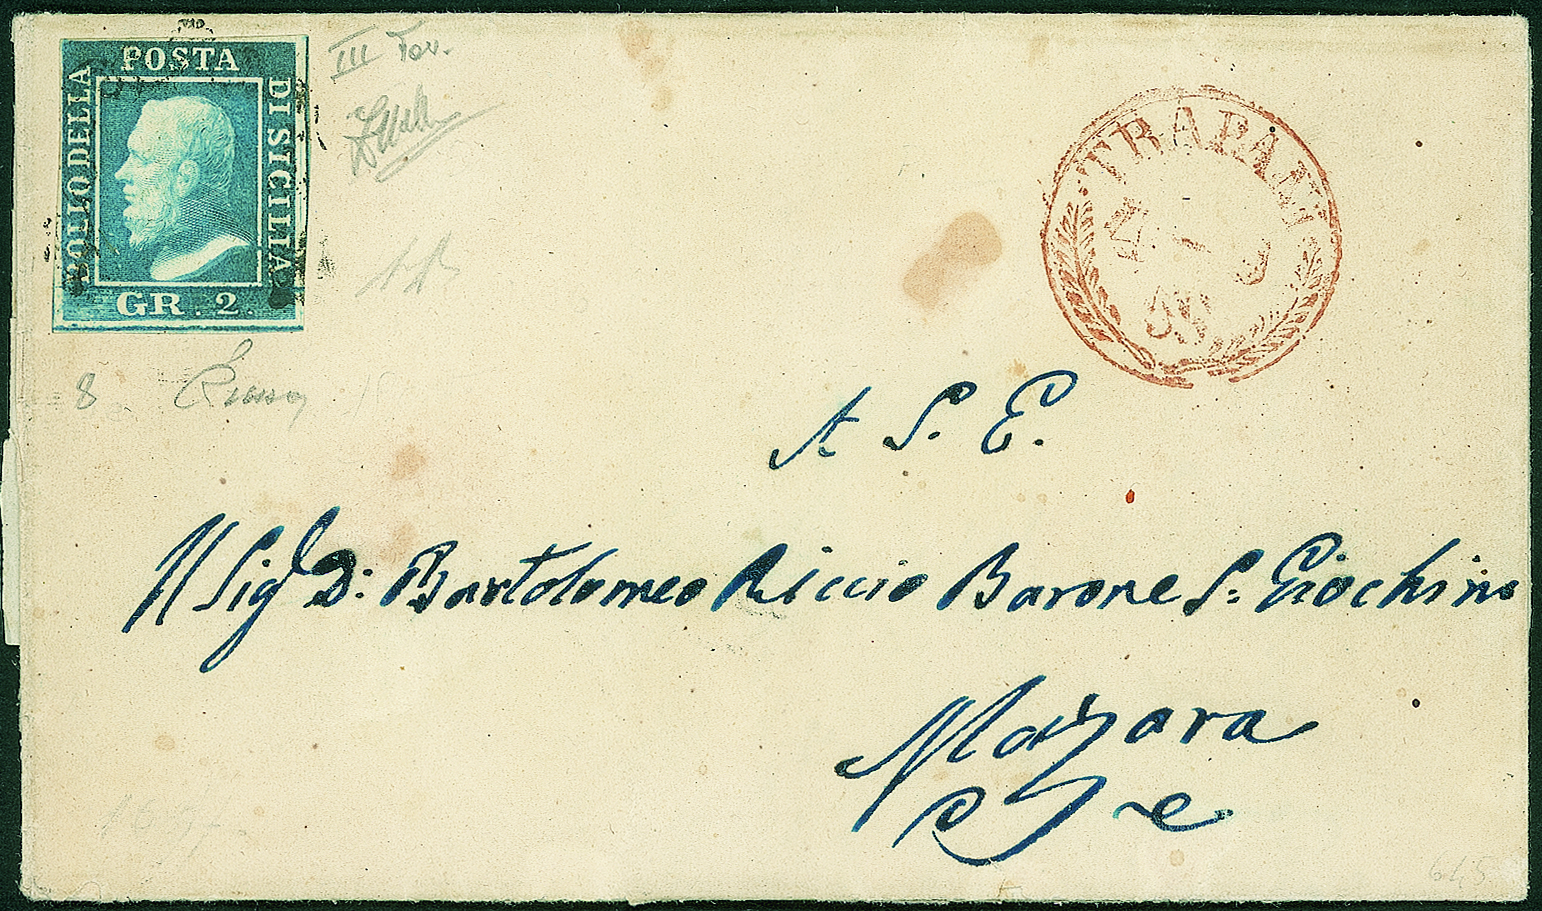 POSTA
BOLLO DELLA
DI SICILIA
GR. 2.
III Tav.
8
TRAPANI
A S. E.
Il Sig. D: Bartolomeo Riccio Barone S: Giochino
Mazara
645